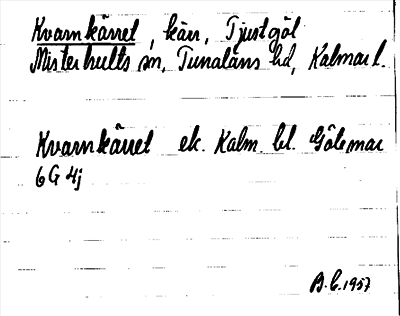 Kvarnkärret, kärr, Tjustgöl
Misterhults sn, Tunaläns hd, Kalmar l.
Kvarnkärret ek. Kalm. bl. Götemar
6 G 4j
B.L. 1957